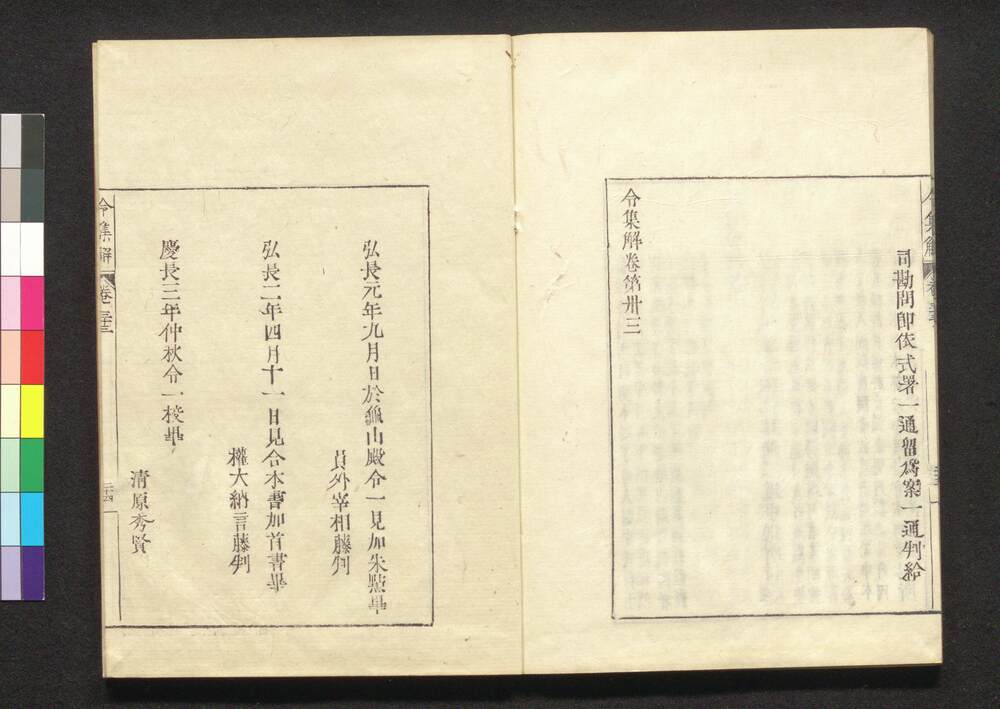 司勘問即依式署一通留爲案一通判給
令集解卷第卅三
弘長元年九月日於龜山殿令一見加朱點畢
員外宰相藤判
弘長二年四月十一日見合本書加首書畢
權大納言藤判
慶長三年仲秋令一校畢
清原秀賢
令集解